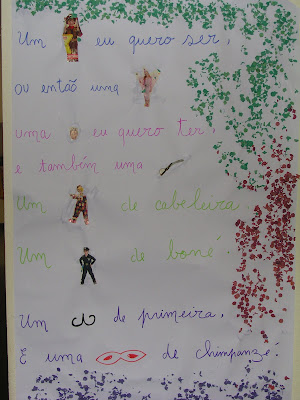 Um eu quero ser,
ou então uma
uma eu quero ter,
e também uma
Um de cabeleira
Um de boné
Um de primeira,
E uma de chimpanzé.